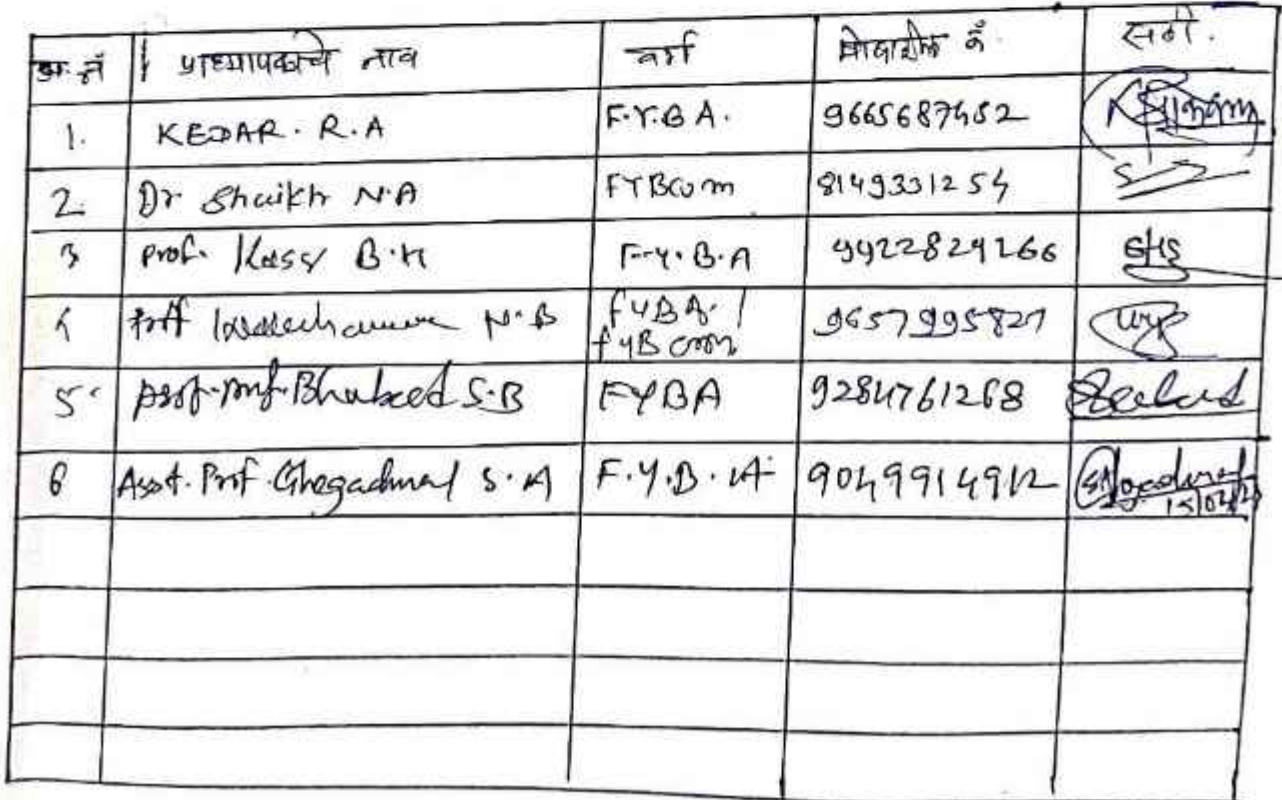 अ. नं प्राध्यापकाचे नाव वर्ग मोबाईल नं. सही.
1. KEDAR. R.A F.Y.B A. 9665687452
2. Dr Shaikh N.A FYBCom 8149331254
3 Prof. B.H F.Y.B.A 9922829266
4 Prof N.B FYBA. / 9657995827
FYBCom
5. Asst. Prof. S.B FYBA 9284761268
6 Asst. Prof. Ghegadmal S.A F.Y.B.A 9049914912
15/02/23